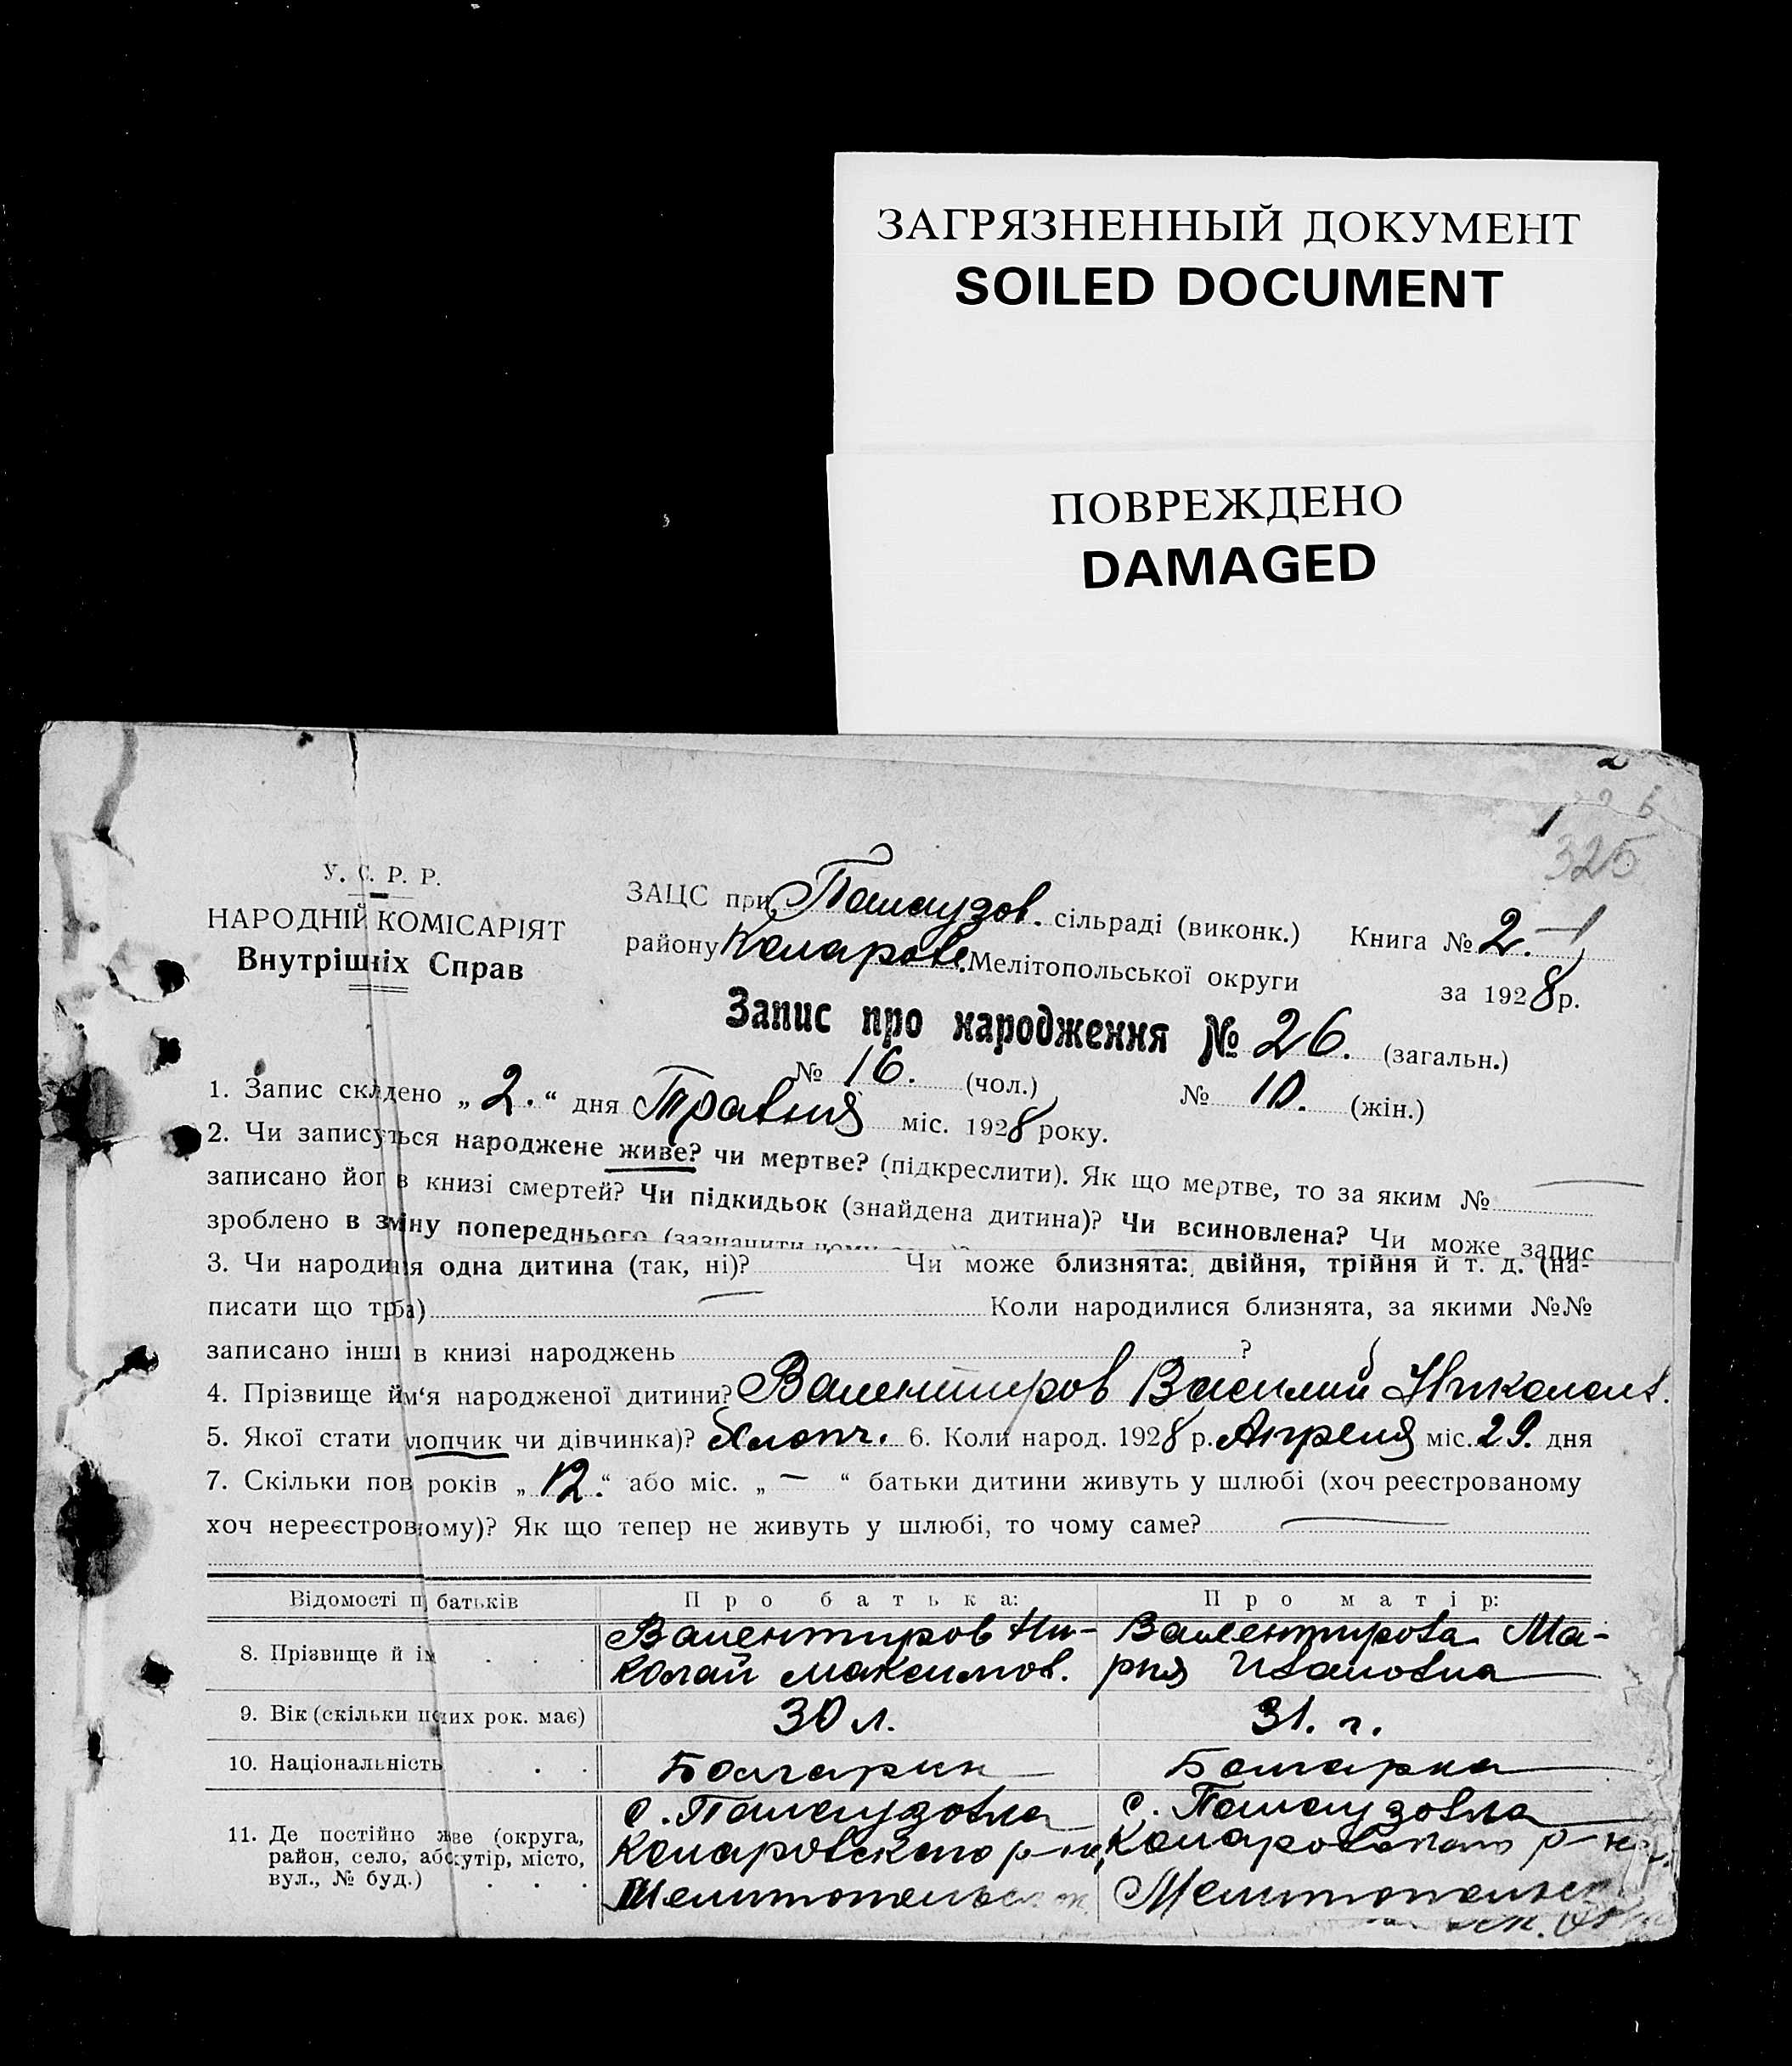 ЗАГРЯЗНЕННЫЙ ДОКУМЕНТ
SOILED DOCUMENT
ПОВРЕЖДЕНО
DAMAGED
2
325
У. С. Р. Р.
НАРОДНІЙ КОМІСАРІЯТ
Внутрішніх Справ
ЗАЦС при Палаузов. сільраді (виконк.) Книга № 2.
району Коларовс. Мелітопольської округи за 1928 р.
Запис про народження № 26. (загальн.)
№ 16. (чол.) № 10. (жін.)
1. Запис складено „2.“ дня Травня міс. 1928 року.
2. Чи записується народжене живе? чи мертве? (підкреслити). Як що мертве, то за яким №
записано йог в книзі смертей? Чи підкидьок (знайдена дитина)? Чи всиновлена? Чи може запис
зроблено в зміну попереднього (зазначити чому
3. Чи народися одна дитина (так, ні)? Чи може близнята: двійня, трійня й т. д. (на-
писати що трба) Коли народилися близнята, за якими №№
записано інші в книзі народжень ?
4. Прізвище йм‘я народженої дитини? Валентиров Василий Николаев.
5. Якої стати лопчик чи дівчинка)? Хлопч. 6. Коли народ. 1928 р. Апреля міс. 29. дня
7. Скільки пов років „12.“ або міс. „—“ батьки дитини живуть у шлюбі (хоч реєстрованому
хоч нереєстровному)? Як що тепер не живуть у шлюбі, то чому саме?
Відомості п батьків Про батька: Про матір:
8. Прізвище й ім . . . Валентиров Ни- Валентирова Ма-
колай Максимов. рия Ивановна
9. Вік (скільки пних рок. має) 30 л. 31. г.
10. Національність . . Болгарин Болгарка
11. Де постійно живе (округа, с. Палаузовка с. Палаузовка
район, село, або хутір, місто, Коларовского р-на, Коларовского р-на
вул., № буд.) . . . Мелитопольск Мелитопольс